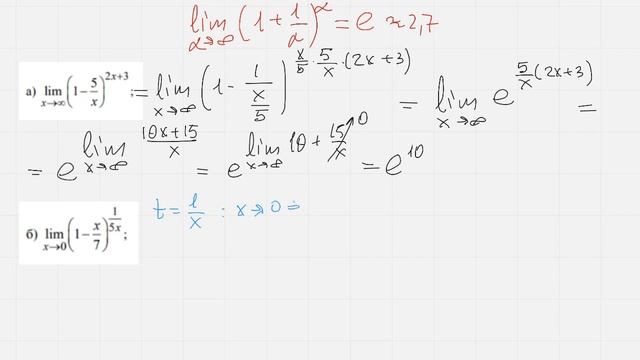 lim α→∞ (1 + 1/α)^α = e ≈ 2,7
а) lim x→∞ (1 − 5/x)^(2x+3); = lim x→∞ (1 − 1/(x/5))^(x/5 · 5/x · (2x+3)) = lim x→∞ e^(5/x (2x+3)) =
= e^(lim x→∞ (10x+15)/x) = e^(lim x→∞ 10 + 15/x → 0) = e^10
б) lim x→0 (1 − x/7)^(1/(5x)); t = 1/x : x→0 =